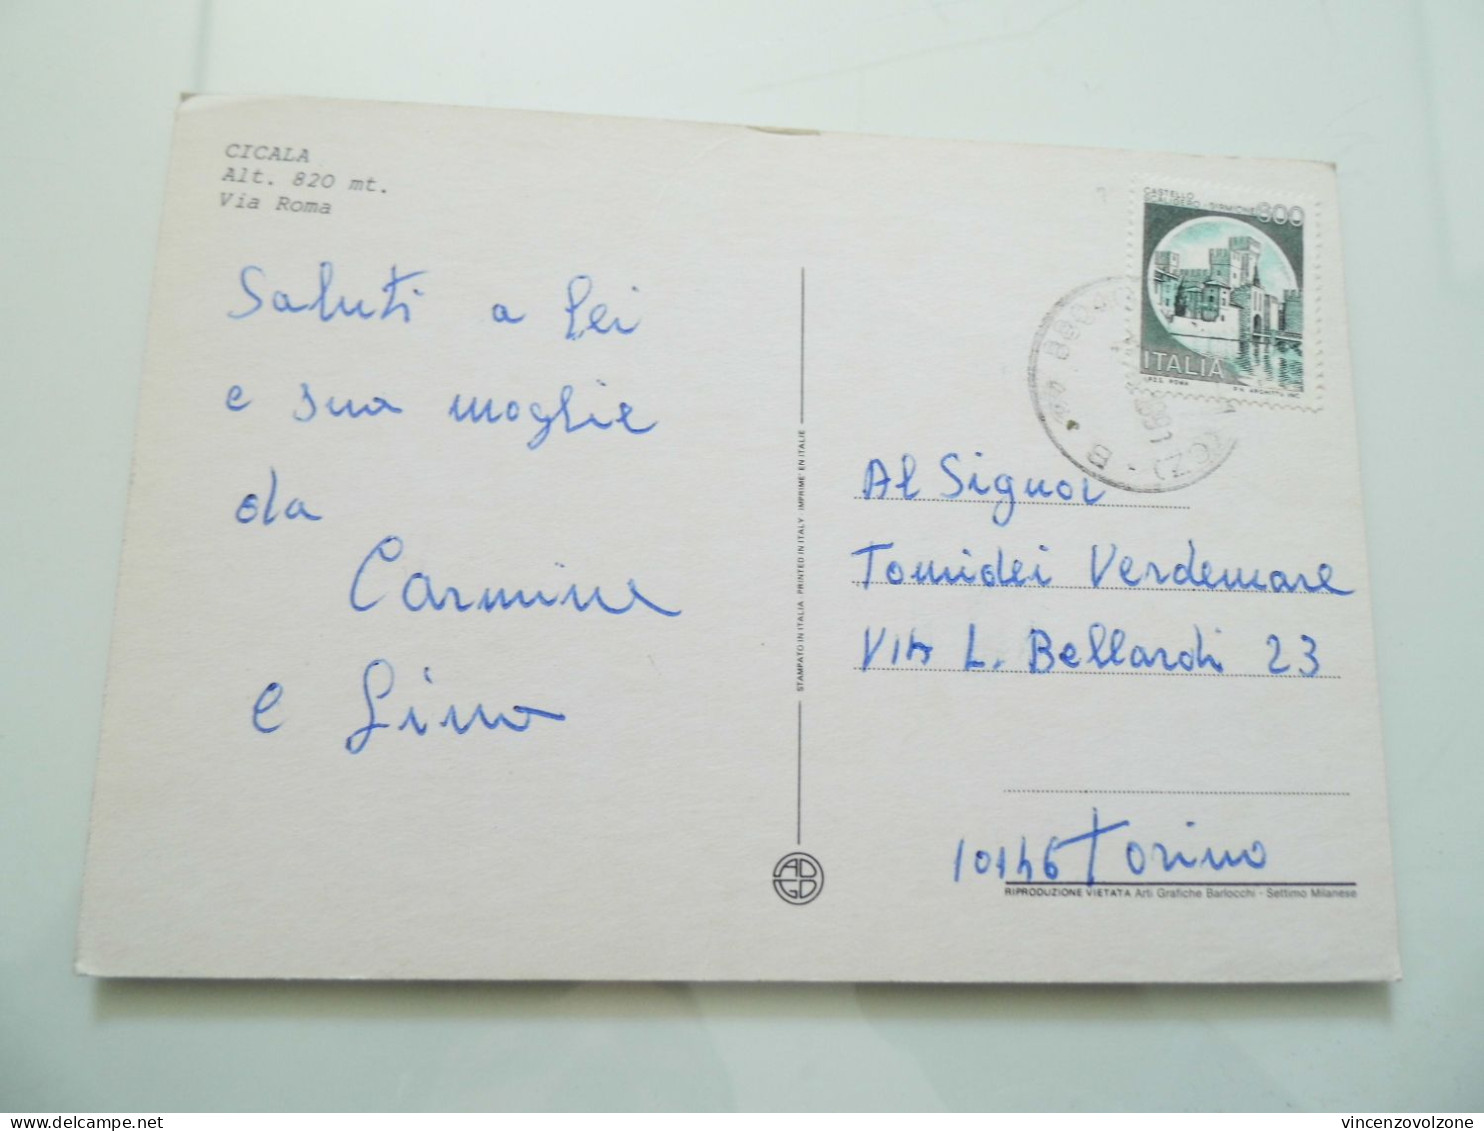 CICALA
Alt. 820 mt.
Via Roma
Saluti a Lei
e sua moglie
da
Carmine
e Lino
STAMPATO IN ITALIA - PRINTED IN ITALY - IMPRIMÉ EN ITALIE
CASTELLO
SCALIGERO SIRMIONE
ITALIA
I.P.Z.S. ROMA
(CZ) - B
Al Signor
Tomidei Verdemare
Via L. Bellardi 23
10146 Torino
RIPRODUZIONE VIETATA Arti Grafiche Barlocchi - Settimo Milanese
vincenzovolzone